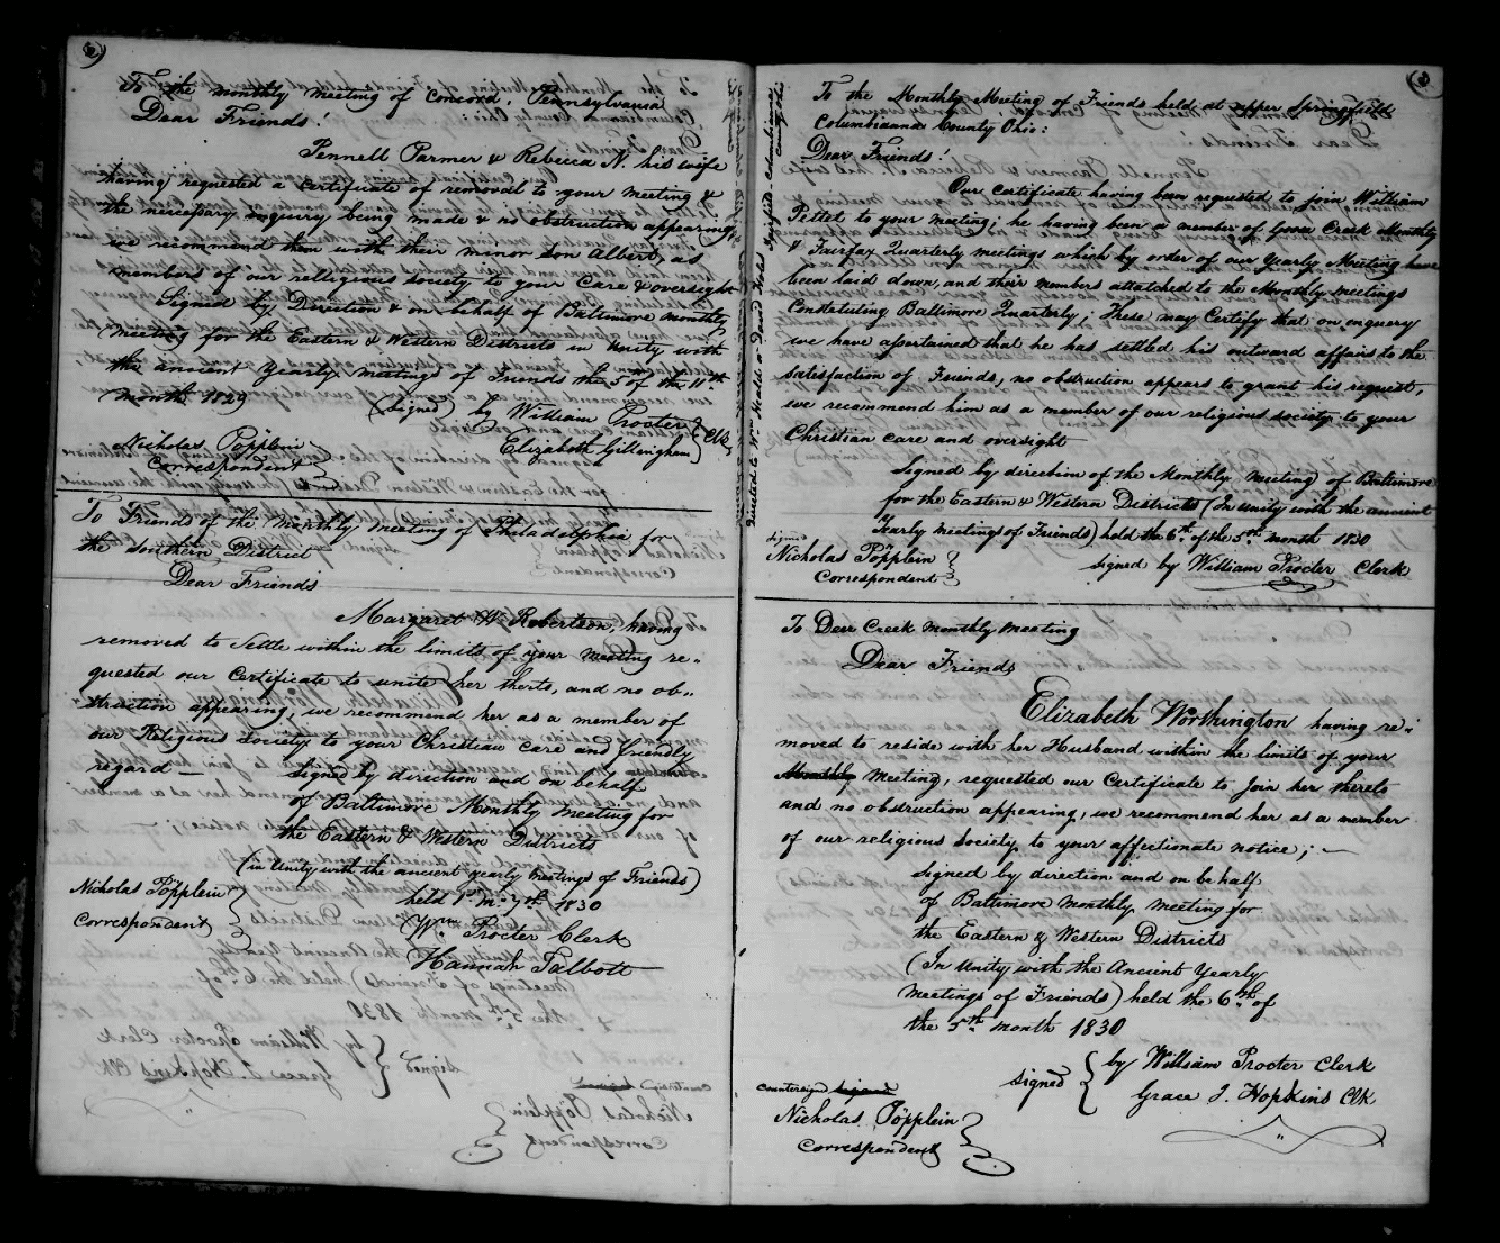 To the monthly meeting of Concord, Pennsylvania
Dear Friends!
Pennell Parmer & Rebecca N. his wife
having requested a Certificate of removal to your meeting &
the necessary enquery being made & no obstruction appearing,
we recommend them with their minor son Albert, as
members of our relligious society to your Care & oversight
Signed by Direction & on behalf of Baltimore monthly
meeting for the Eastern & Western Districts in Unity with
the ancient Yearly meetings of Friends the 5 of the 11th
month 1829
(signed) by William Procter
Elizabeth Gillingham } Clk
Nicholas Pöpplein
Correspondent
To Friends of the monthly meeting of Philadelphia for
the Southern District
Dear Friends
Margaret W. Robertson, having
removed to Settle within the limits of your meeting re-
quested our Certificate to unite her therto, and no ob-
struction appearing, we recommend her as a member of
our Religious Society to your Christian care and friendly
regard —
Signed by direction and on behalf
of Baltimore Monthly Meeting for
the Eastern & Western Districts
(in Unity with the ancient yearly meetings of Friends)
held 1st mo 7th 1830
Nicholas Pöpplein
Correspondent
Wm. Procter Clerk
Hannah Talbott
directed to Wm Heald or David Fairfield Columbiana County Ohio
To the Monthly Meeting of Friends held at upper Springfield
Columbiana County Ohio:
Dear Friends!
Our Certificate having been requested to join William
Pettet to your meeting; he having been a member of Goose Creek Monthly
& Fairfax Quarterly meetings which by order of our Yearly Meeting have
been laid down, and their members attatched to the Monthly meetings
Constetuting Baltimore Quarterly; These may Certify that on inquery
we have assertained that he has settled his outward affairs to the
satisfaction of Friends, no obstruction appears to grant his request,
we recommend him as a member of our religious society to your
Christian care and oversight
Signed by direction of the Monthly Meeting of Baltimore
for the Eastern & Western Districts (In unity with the ancient
Yearly meetings of Friends) held the 6th of the 5th month 1830
signed
Nicholas Pöpplein
Correspondent
signed by William Procter Clerk
To Deer Creek monthly meeting
Dear Friends
Elizabeth Worthington having re-
moved to reside with her Husband within the limits of your
Monthly Meeting, requested our Certificate to join her thereto
and no obstruction appearing, we recommend her as a member
of our religious Society to your affectionate notice; —
Signed by direction and on behalf
of Baltimore monthly meeting for
the Eastern & Western Districts
(In Unity with the Ancient Yearly
Meetings of Friends) held the 6th of
the 5th month 1830
signed { by William Procter Clerk
Grace J. Hopkins Clk
countersign signed
Nicholas Pöpplein
Correspondent